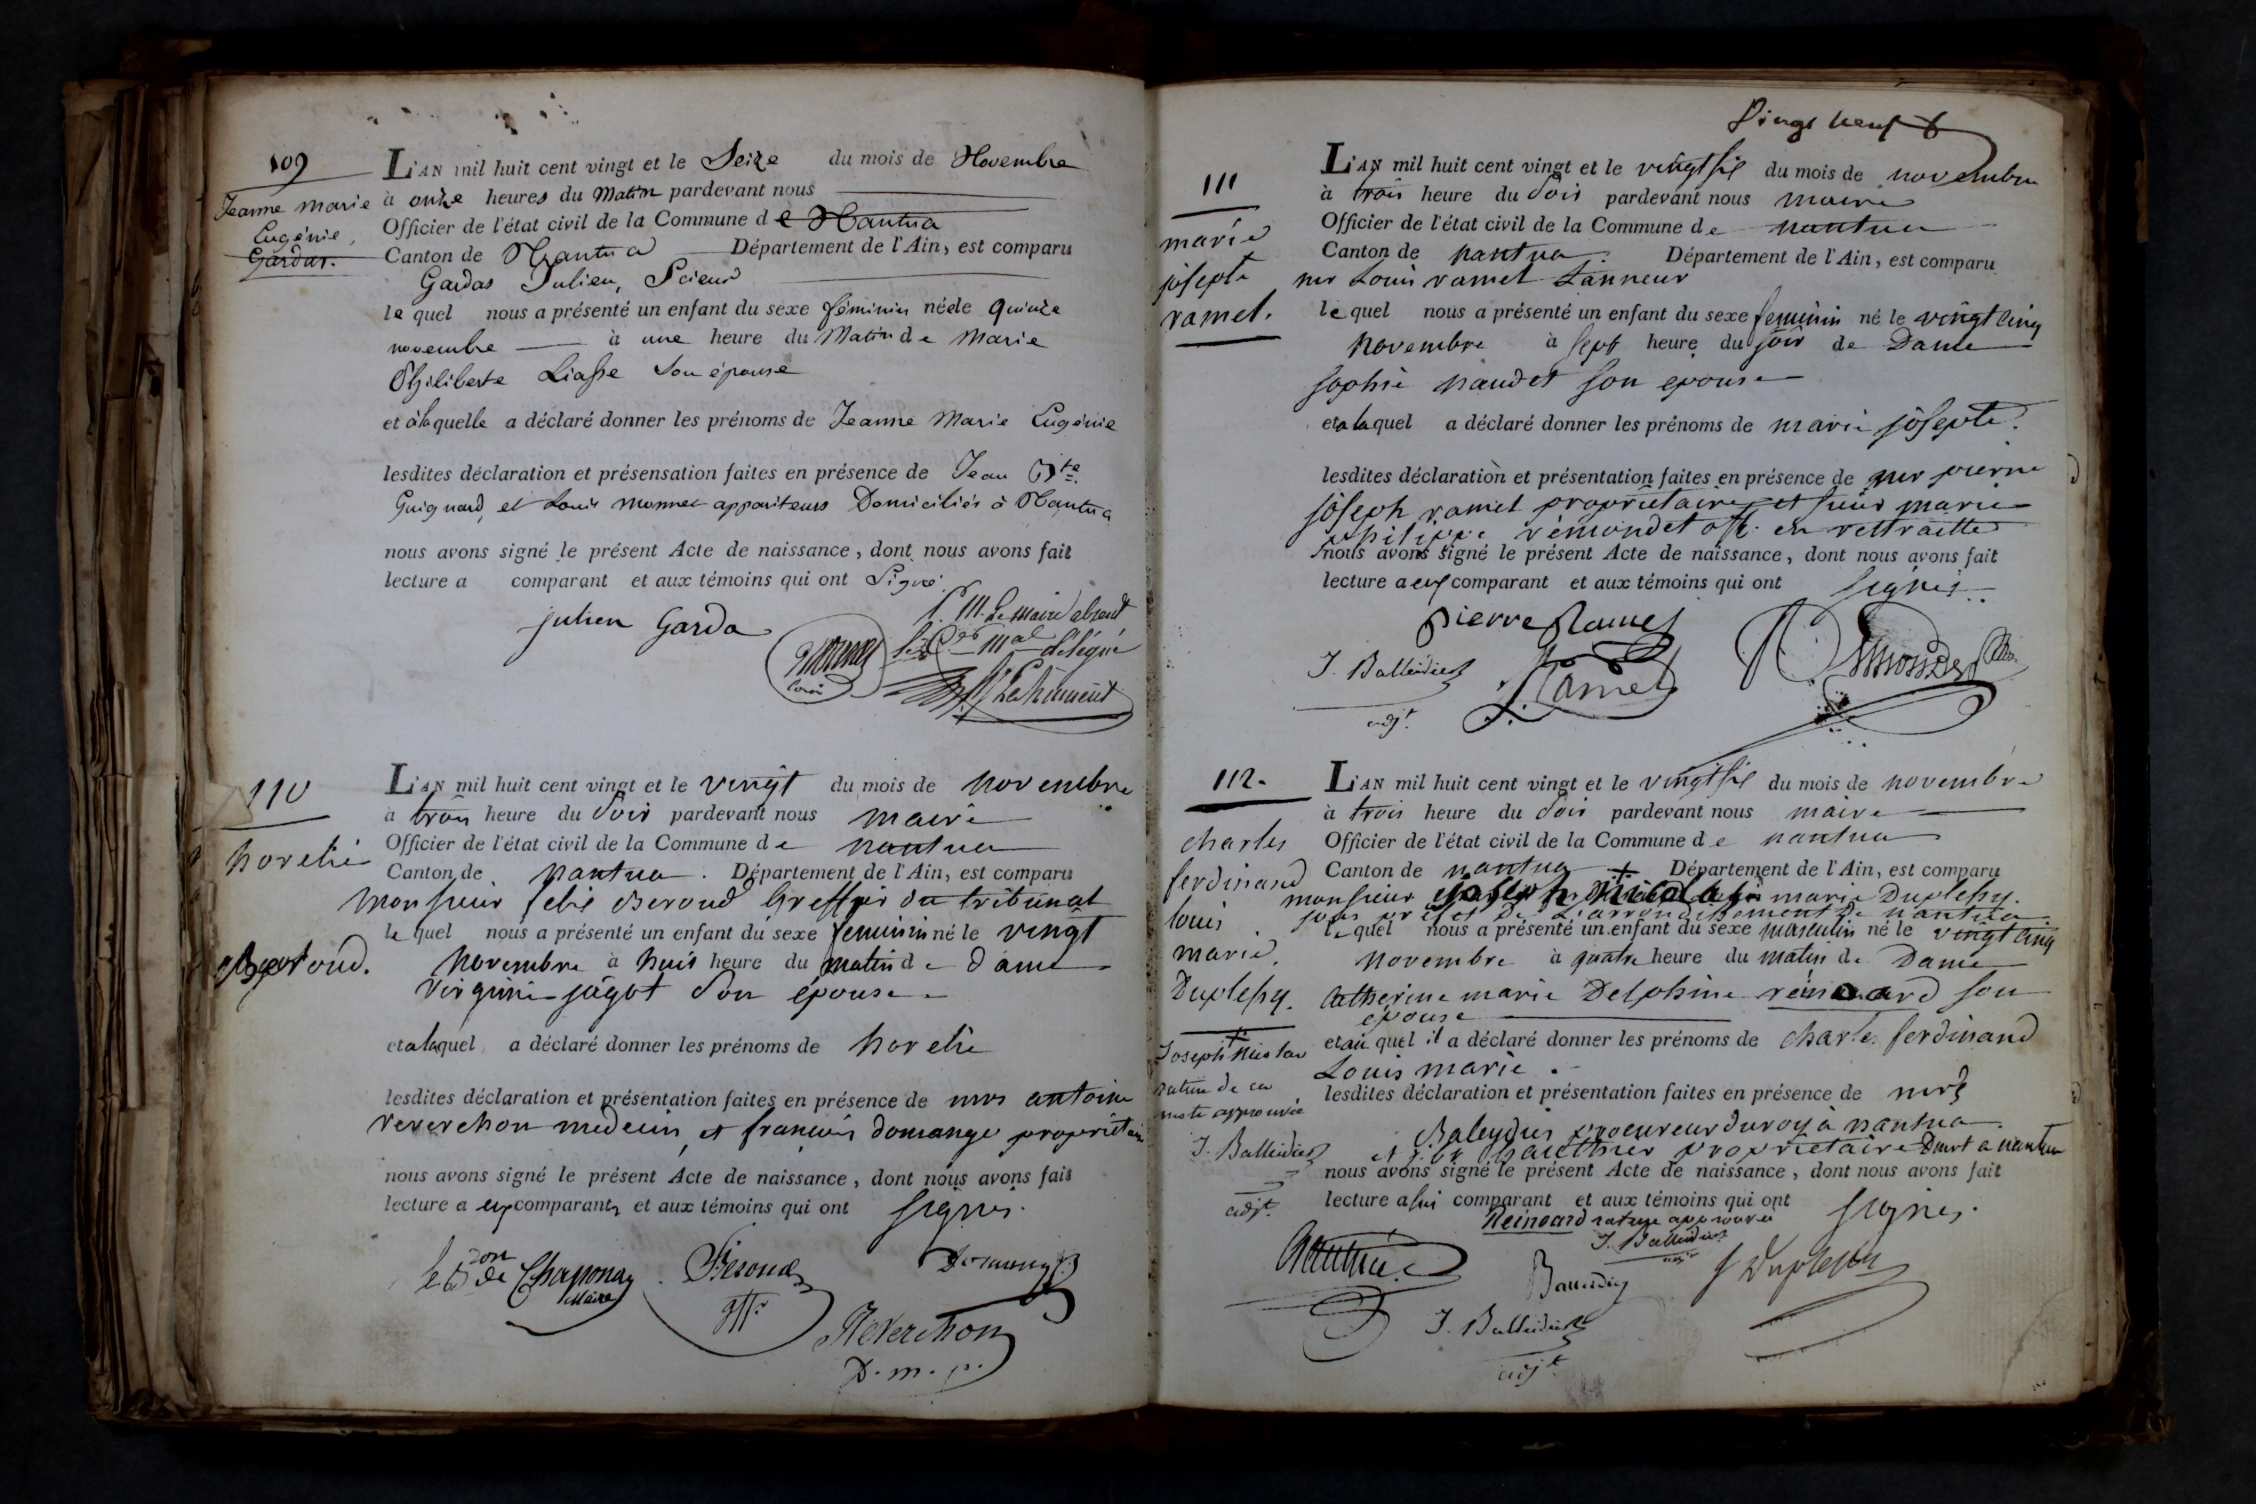 109
Jeanne Marie
Eugénie,
Gardas.
L'AN mil huit cent vingt et le Seize du mois de Novembre
à onze heures du Matin pardevant nous
Officier de l'état civil de la Commune de Nantua
Canton de Nantua Département de l'Ain, est comparu
Gardas Julien, Scieur
lequel nous a présenté un enfant du sexe féminin née le quinze
novembre à une heure du Matin de Marie
Philiberte Liasse Son épouse
et à laquelle a déclaré donner les prénoms de Jeanne Marie Eugénie
lesdites déclaration et présensation faites en présence de Jean Bte
Guignard, et Louis Monnet appariteurs Domiciliés à Nantua
nous avons signé le présent Acte de naissance, dont nous avons fait
lecture a comparant et aux témoins qui ont Signé.
julien Garda
p. M. Le maire absent
le Cer Mal délégué
110
horelie
Beroud.
L'AN mil huit cent vingt et le vingt du mois de novembre
à trois heure du Soir pardevant nous maire
Officier de l'état civil de la Commune de nantua
Canton de nantua. Département de l'Ain, est comparu
Monsieur felix Beroud Greffier du tribunal
le quel nous a présenté un enfant du sexe feminin né le vingt
Novembre à huit heure du matin de dame
Virginie jagot Son épouse
et a laquel a déclaré donner les prénoms de horelie
lesdites déclaration et présentation faites en présence de mrs antoine
reverchon medecin, et francois domange propriétaire
nous avons signé le présent Acte de naissance, dont nous avons fait
lecture a eux comparants et aux témoins qui ont signés.
le Bon de Chaponay
Maire
Béroud
gffr
Reverchon
D. m. p.
Vingt neuf
111
marie
josepte
ramel.
L'AN mil huit cent vingt et le vingt six du mois de novembre
à trois heure du Soir pardevant nous maire
Officier de l'état civil de la Commune de nantua
Canton de nantua. Département de l'Ain, est comparu
mr Louis ramel tanneur
le quel nous a présenté un enfant du sexe feminin né le vingt cinq
Novembre à sept heure du soir de Dame
sophie naudet son epouse
et a laquel a déclaré donner les prénoms de marie josepte.
lesdites déclaration et présentation faites en présence de mr pierre
joseph ramel propriétaire et sieur marie
philippe rémondet off. en rettraitte
nous avons signé le présent Acte de naissance, dont nous avons fait
lecture a eux comparant et aux témoins qui ont signés.
Pierre Ramel
J. Balleidier
adjt.
L. Ramel
112.
charles
ferdinand
louis
marie.
Duplessy.
Joseph Nicolas
rature de ce
mots approuvée
J. Balleidier
adjt.
L'AN mil huit cent vingt et le vingt six du mois de novembre
à trois heure du Soir pardevant nous maire
Officier de l'état civil de la Commune de nantua
Canton de nantua + Département de l'Ain, est comparu
monsieur joseph Nicolas marie Duplessy.
sous préfet de l'arrondissement de nantua.
le quel nous a présenté un enfant du sexe masculin né le vingt cinq
Novembre à quatre heure du matin de Dame
Catherine marie Delphine reinoard son
épouse
et au quel il a déclaré donner les prénoms de charles ferdinand
Louis marie.
lesdites déclaration et présentation faites en présence de mrs
Baleydier procureur du roy à nantua
et hauthier propriétaire Dmrt a nantua
nous avons signé le présent Acte de naissance, dont nous avons fait
lecture a lui comparant et aux témoins qui ont signés.
Reinoard rature approuvée
J. Balleidier
adjt
J. Duplessy
J. Balleidier
adjt.